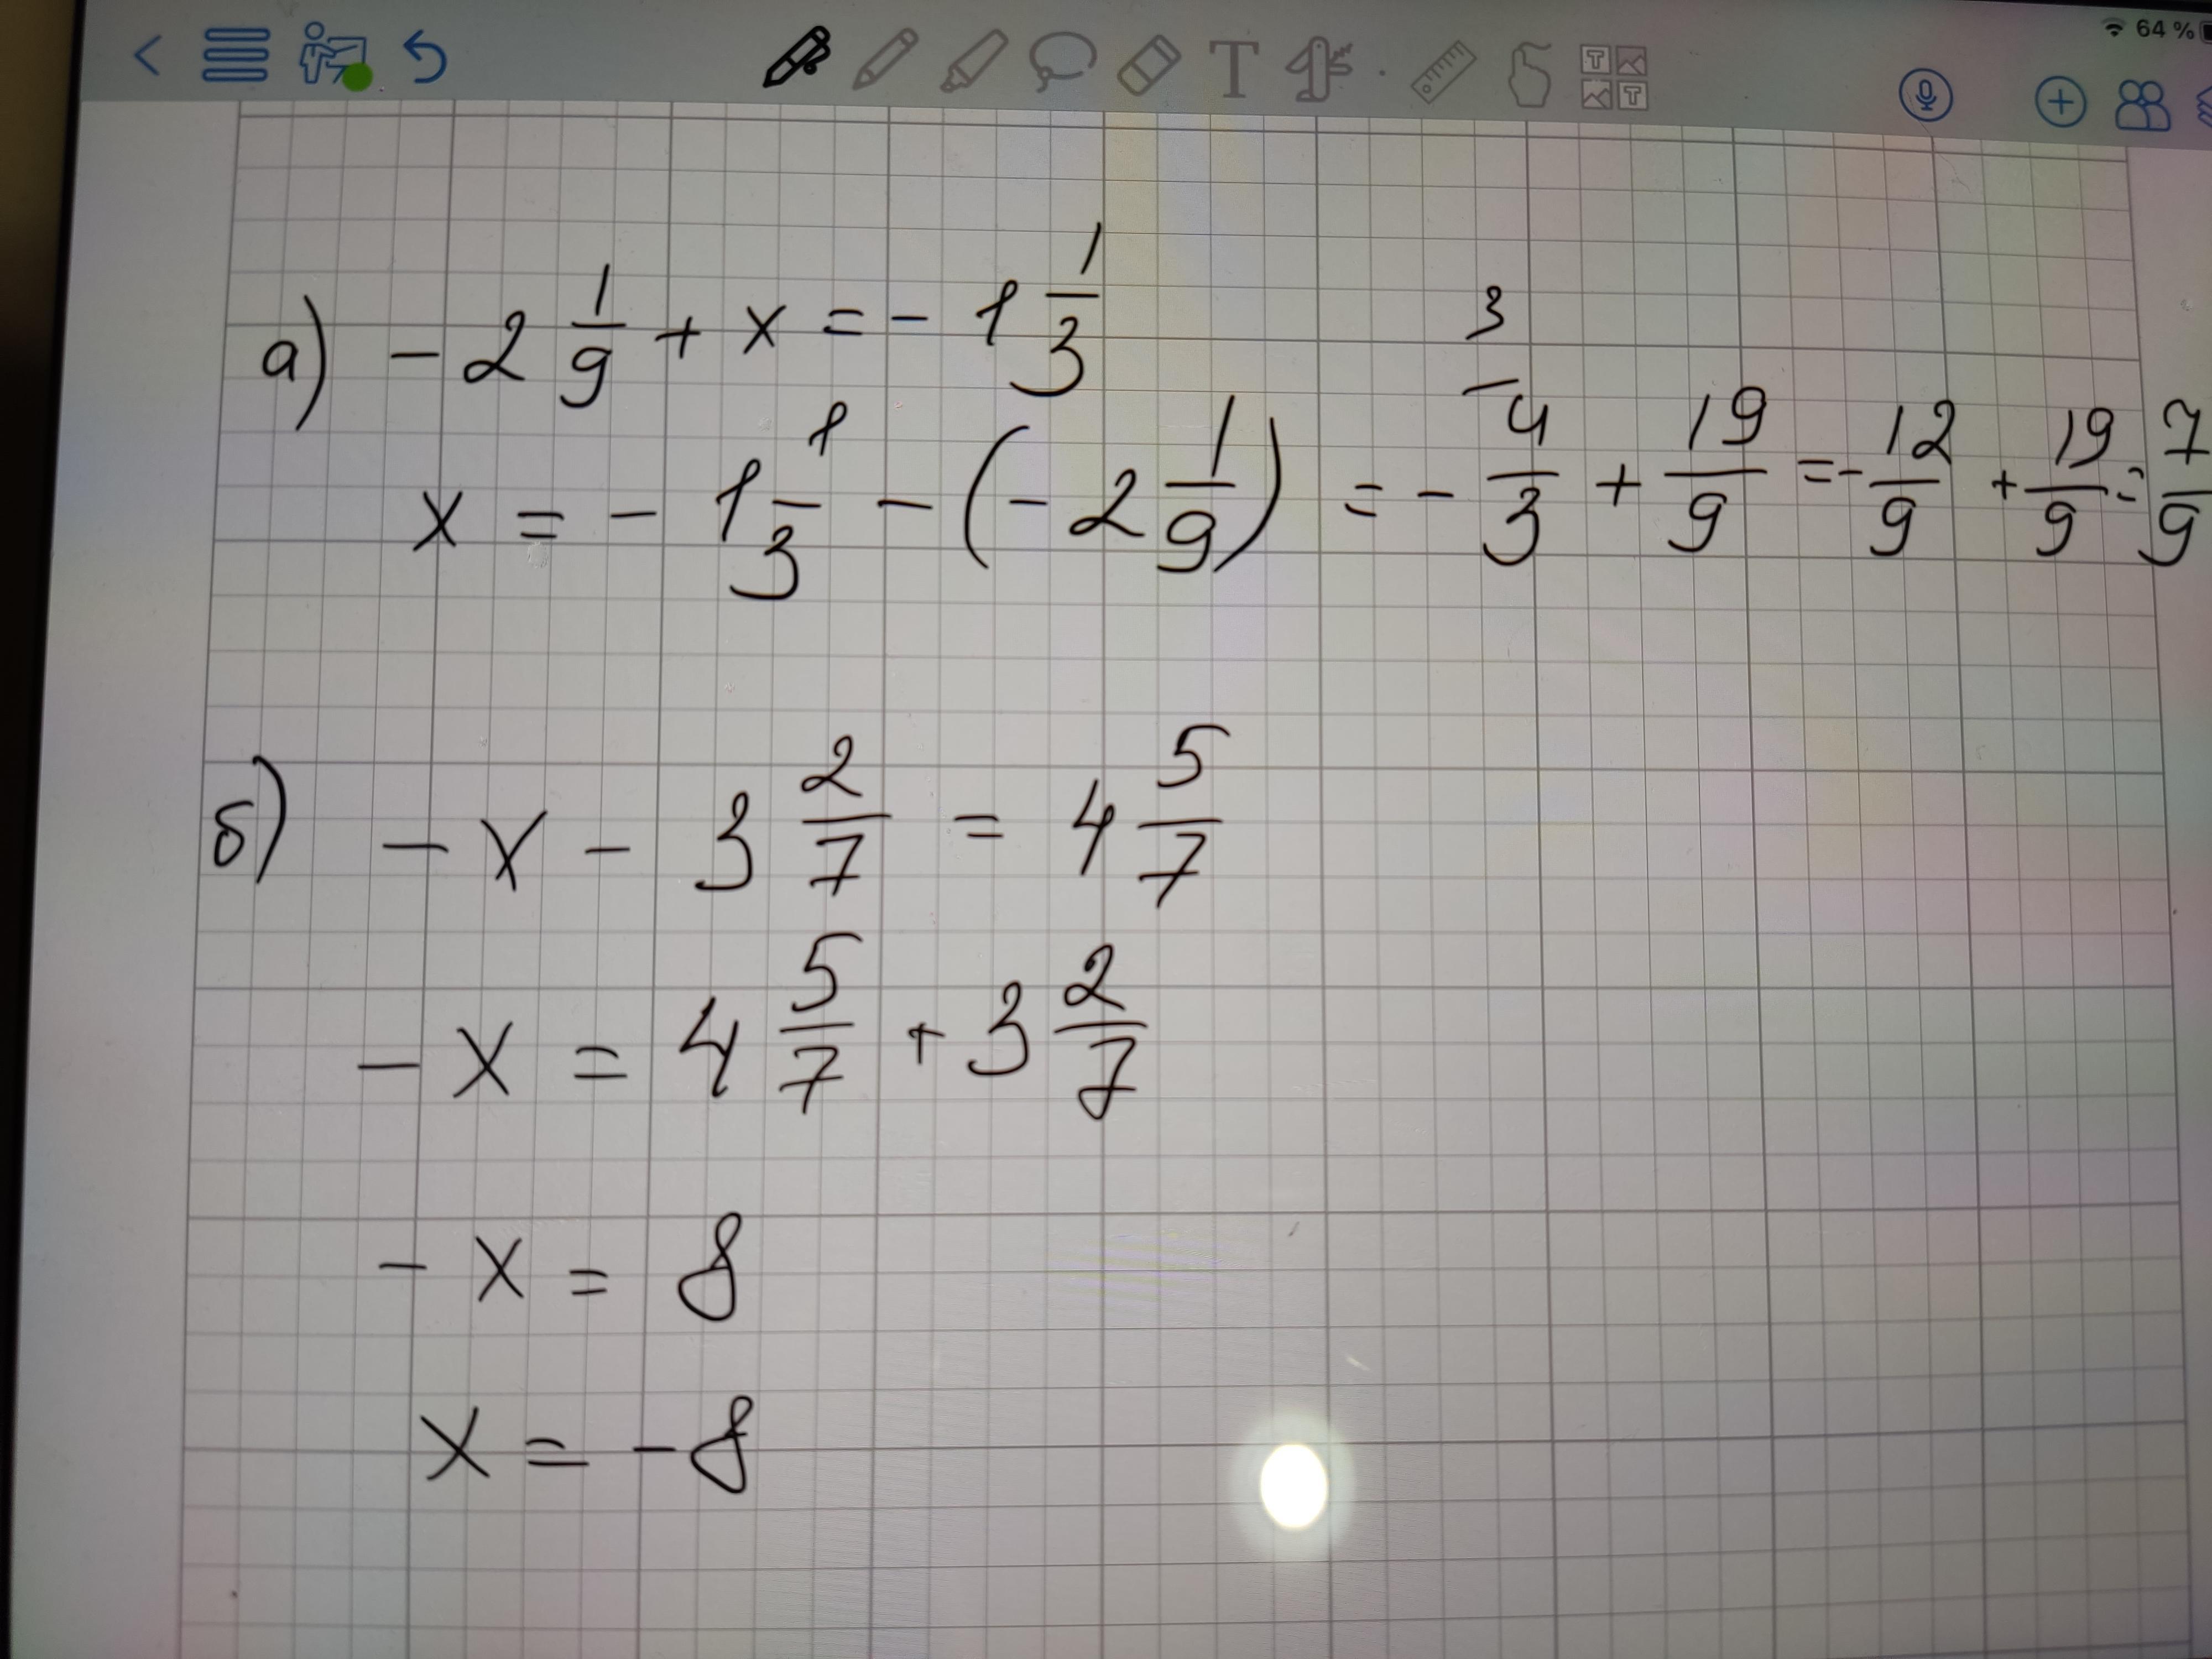 64 %
T
а) - 2 1/9 + x = - 1 1/3
x = - 1 1/3 - (- 2 1/9) = - 4/3 + 19/9 = - 12/9 + 19/9 = 7/9
3
б) - x - 3 2/7 = 4 5/7
- x = 4 5/7 + 3 2/7
- x = 8
x = - 8